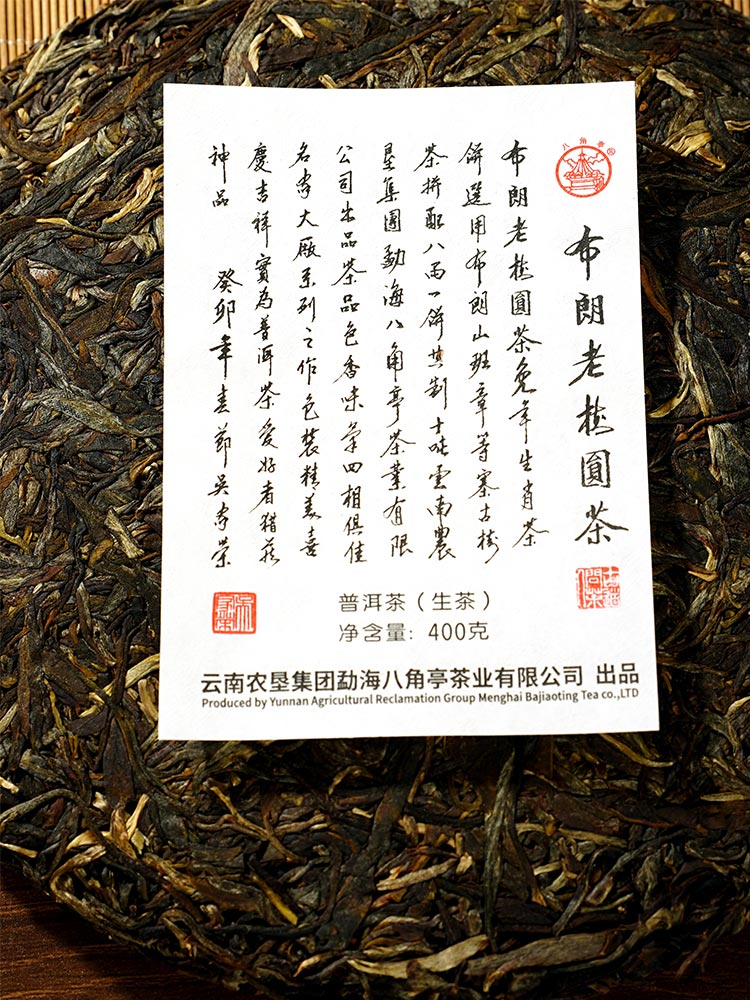 八角亭®
布朗老樹圓茶
布朗老樹圓茶兔年生肖茶
餅選用布朗山班章等寨古樹
茶拼配八两一餅共制十吨雲南農
墾集團勐海八角亭茶業有限
公司出品茶品色香味氣四相俱佳
名家大廠系列之作包裝精美喜
慶吉祥實為普洱茶愛好者猎藏
神品 癸卯年春節吳家榮
普洱茶（生茶）
净含量：400克
云南农垦集团勐海八角亭茶业有限公司 出品
Produced by Yunnan Agricultural Reclamation Group Menghai Bajiaoting Tea co.,LTD